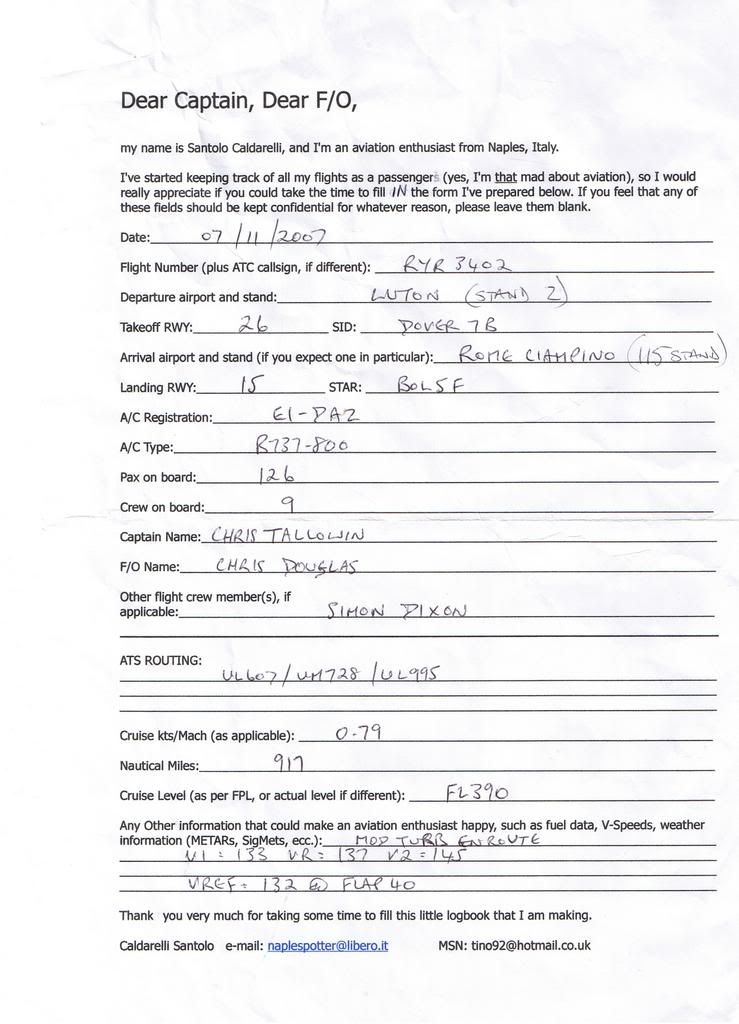 Dear Captain, Dear F/O,
my name is Santolo Caldarelli, and I'm an aviation enthusiast from Naples, Italy.
I've started keeping track of all my flights as a passengers (yes, I'm that mad about aviation), so I would
really appreciate if you could take the time to fill IN the form I've prepared below. If you feel that any of
these fields should be kept confidential for whatever reason, please leave them blank.
Date: 07/11/2007
Flight Number (plus ATC callsign, if different): RYR 3402
Departure airport and stand: LUTON (STAND 2)
Takeoff RWY: 26 SID: DOVER 7B
Arrival airport and stand (if you expect one in particular): ROME CIAMPINO (115 STAND)
Landing RWY: 15 STAR: BOL5F
A/C Registration: EI-DAZ
A/C Type: B737-800
Pax on board: 126
Crew on board: 9
Captain Name: CHRIS TALLOWIN
F/O Name: CHRIS DOUGLAS
Other flight crew member(s), if
applicable: SIMON DIXON
ATS ROUTING:
UL607/UM728/UL995
Cruise kts/Mach (as applicable): 0-79
Nautical Miles: 917
Cruise Level (as per FPL, or actual level if different): FL390
Any Other information that could make an aviation enthusiast happy, such as fuel data, V-Speeds, weather
information (METARs, SigMets, ecc.): MOD TURB ENROUTE
V1 = 133 VR = 137 V2 = 145
VREF = 132 @ FLAP 40
Thank you very much for taking some time to fill this little logbook that I am making.
Caldarelli Santolo e-mail: naplespotter@libero.it MSN: tino92@hotmail.co.uk